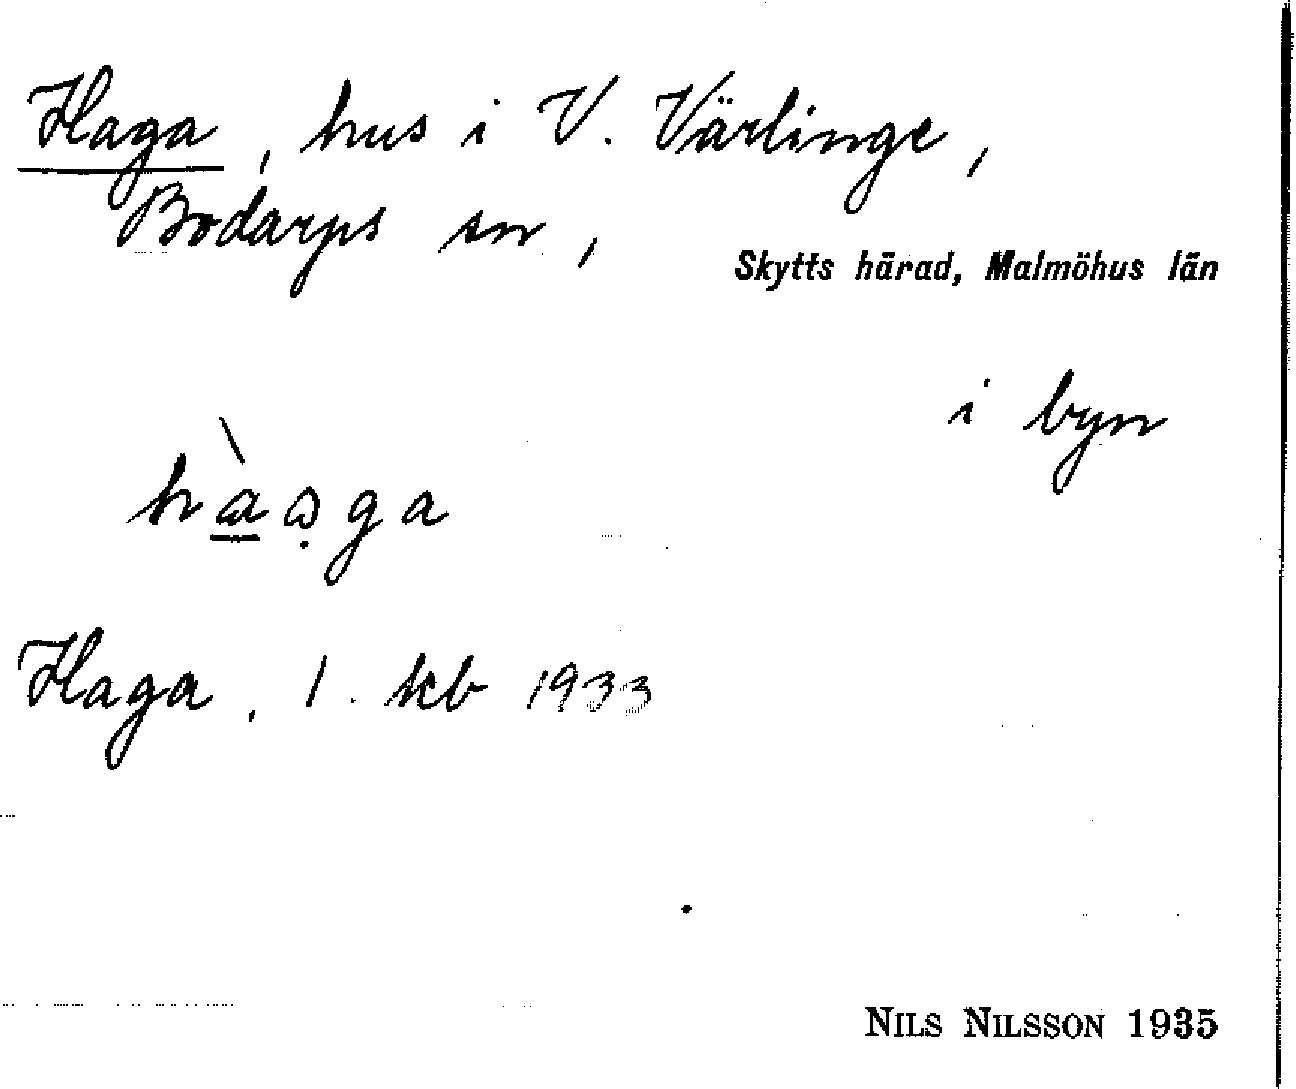 Haga, hus i V. Värlinge,
Bodarps sn,
Skytts härad, Malmöhus län
i byn
Haga. 1. kb 1933
NILS NILSSON 1935